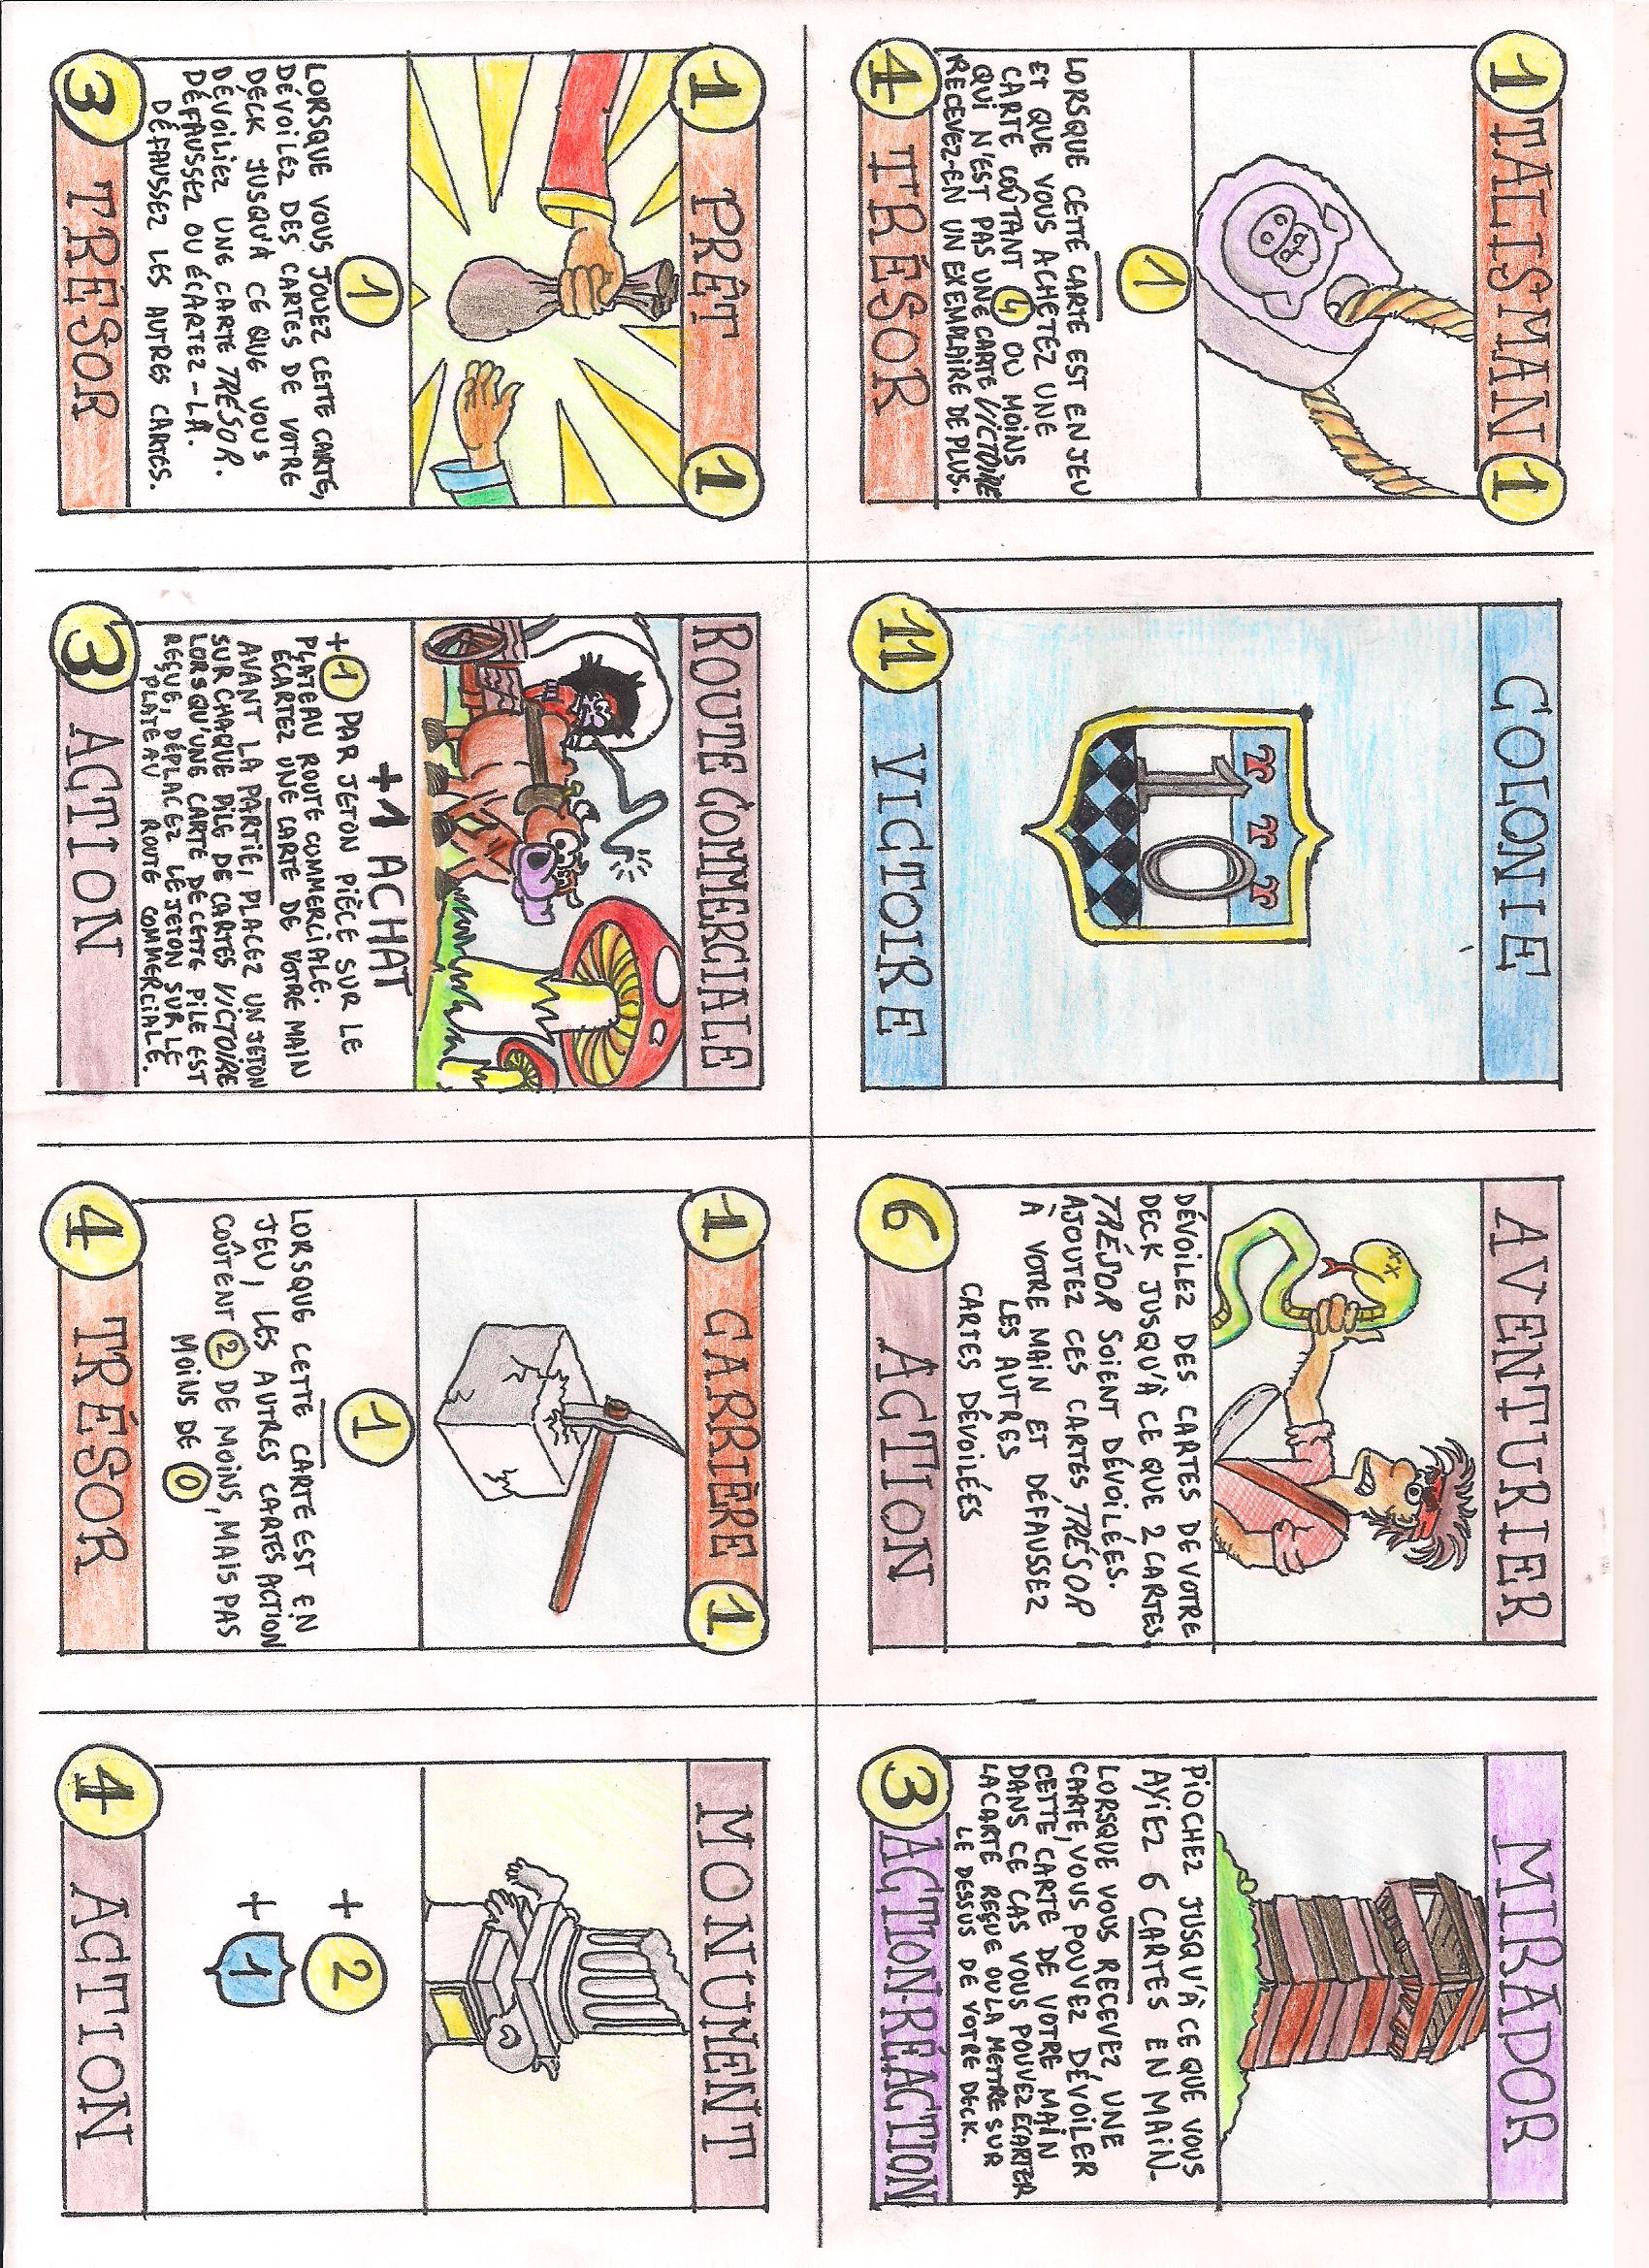 1 TALISMAN 1
1
LORSQUE CETTE CARTE EST EN JEU
ET QUE VOUS ACHETEZ UNE
CARTE COÛTANT 4 OU MOINS
QUI N'EST PAS UNE CARTE VICTOIRE
RECEVEZ-EN UN EXEMPLAIRE DE PLUS.
4 TRÉSOR
COLONIE
10
11 VICTOIRE
AVENTURIER
DÉVOILEZ DES CARTES DE VOTRE
DECK JUSQU'À CE QUE 2 CARTES
TRÉSOR SOIENT DÉVOILÉES.
AJOUTEZ CES CARTES TRÉSOR
À VOTRE MAIN ET DÉFAUSSEZ
LES AUTRES
CARTES DÉVOILÉES
6 ACTION
MIRADOR
PIOCHEZ JUSQU'À CE QUE VOUS
AYIEZ 6 CARTES EN MAIN.
LORSQUE VOUS RECEVEZ UNE
CARTE, VOUS POUVEZ DÉVOILER
CETTE CARTE DE VOTRE MAIN
DANS CE CAS VOUS POUVEZ ÉCARTER
LA CARTE REÇUE OU LA METTRE SUR
LE DESSUS DE VOTRE DECK.
3 ACTION-RÉACTION
1 PRÊT 1
1
LORSQUE VOUS JOUEZ CETTE CARTE,
DÉVOILEZ DES CARTES DE VOTRE
DECK JUSQU'À CE QUE VOUS
DÉVOILIEZ UNE CARTE TRÉSOR.
DÉFAUSSEZ OU ÉCARTEZ-LÀ.
DÉFAUSSEZ LES AUTRES CARTES.
3 TRÉSOR
ROUTE COMMERCIALE
+1 ACHAT
+1 PAR JETON PIÈCE SUR LE
PLATEAU ROUTE COMMERCIALE.
ÉCARTEZ UNE CARTE DE VOTRE MAIN
AVANT LA PARTIE, PLACEZ UN JETON
SUR CHAQUE PILE DE CARTES VICTOIRE
LORSQU'UNE CARTE DE CETTE PILE EST
REÇUE, DÉPLACEZ LE JETON SUR LE
PLATEAU ROUTE COMMERCIALE.
3 ACTION
1 CARRIÈRE 1
1
LORSQUE CETTE CARTE EST EN
JEU, LES AUTRES CARTES ACTION
COÛTENT 2 DE MOINS, MAIS PAS
MOINS DE 0
4 TRÉSOR
MONUMENT
+ 2
+ 1
4 ACTION